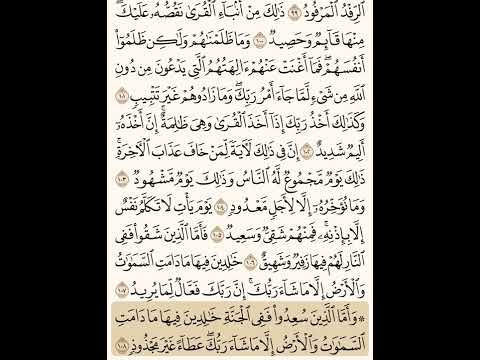 ٱلرِّفۡدُ ٱلۡمَرۡفُودُ ٩٩ ذَٰلِكَ مِنۡ أَنۢبَآءِ ٱلۡقُرَىٰ نَقُصُّهُۥ عَلَيۡكَۖ
مِنۡهَا قَآئِمٞ وَحَصِيدٞ ١٠٠ وَمَا ظَلَمۡنَٰهُمۡ وَلَٰكِن ظَلَمُوٓاْ
أَنفُسَهُمۡۖ فَمَآ أَغۡنَتۡ عَنۡهُمۡ ءَالِهَتُهُمُ ٱلَّتِي يَدۡعُونَ مِن دُونِ
ٱللَّهِ مِن شَيۡءٖ لَّمَّا جَآءَ أَمۡرُ رَبِّكَۖ وَمَا زَادُوهُمۡ غَيۡرَ تَتۡبِيبٖ ١٠١
وَكَذَٰلِكَ أَخۡذُ رَبِّكَ إِذَآ أَخَذَ ٱلۡقُرَىٰ وَهِيَ ظَٰلِمَةٌۚ إِنَّ أَخۡذَهُۥٓ
أَلِيمٞ شَدِيدٌ ١٠٢ إِنَّ فِي ذَٰلِكَ لَأٓيَةٗ لِّمَنۡ خَافَ عَذَابَ ٱلۡأٓخِرَةِۚ
ذَٰلِكَ يَوۡمٞ مَّجۡمُوعٞ لَّهُ ٱلنَّاسُ وَذَٰلِكَ يَوۡمٞ مَّشۡهُودٞ ١٠٣
وَمَا نُؤَخِّرُهُۥٓ إِلَّا لِأَجَلٖ مَّعۡدُودٖ ١٠٤ يَوۡمَ يَأۡتِ لَا تَكَلَّمُ نَفۡسٌ
إِلَّا بِإِذۡنِهِۦۚ فَمِنۡهُمۡ شَقِيّٞ وَسَعِيدٞ ١٠٥ فَأَمَّا ٱلَّذِينَ شَقُواْ فَفِي
ٱلنَّارِ لَهُمۡ فِيهَا زَفِيرٞ وَشَهِيقٌ ١٠٦ خَٰلِدِينَ فِيهَا مَا دَامَتِ ٱلسَّمَٰوَٰتُ
وَٱلۡأَرۡضُ إِلَّا مَا شَآءَ رَبُّكَۚ إِنَّ رَبَّكَ فَعَّالٞ لِّمَا يُرِيدُ ١٠٧
۞ وَأَمَّا ٱلَّذِينَ سُعِدُواْ فَفِي ٱلۡجَنَّةِ خَٰلِدِينَ فِيهَا مَا دَامَتِ
ٱلسَّمَٰوَٰتُ وَٱلۡأَرۡضُ إِلَّا مَا شَآءَ رَبُّكَۖ عَطَآءً غَيۡرَ مَجۡذُوذٖ ١٠٨